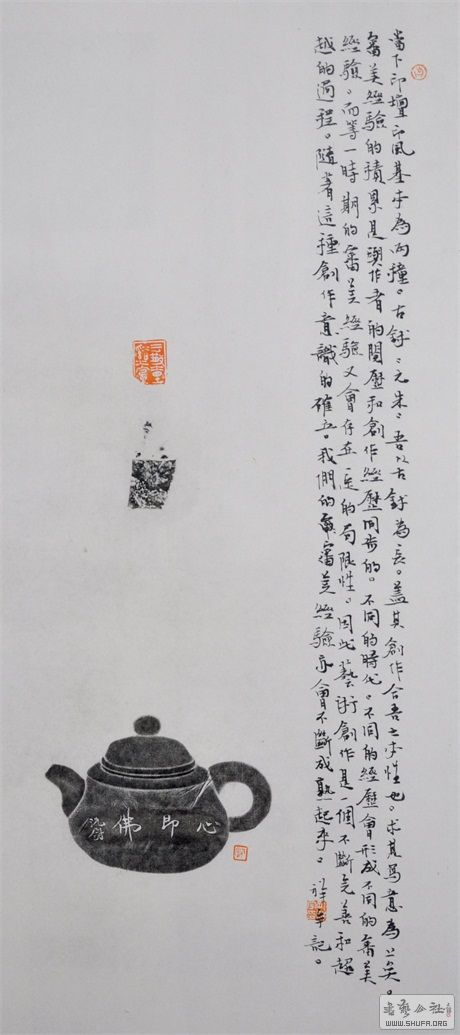 當下印壇印風基本為兩種。古鉨、元朱、吾以古鉨為長。蓋其創作合吾之本性也。求其寫意為上矣。
審美經驗的積累是與作者的閱歷和創作經歷同步的。不同的時代。不同的經歷會形成不同的審美
經驗。而等一時期的審美經驗又會存在一定的局限性。因此藝術創作是一個不斷完善和超
越的過程。隨著這種創作意識的確立。我們的審美經驗亦會不斷成熟起來。記。
心即佛
WWW.SHUFA.ORG